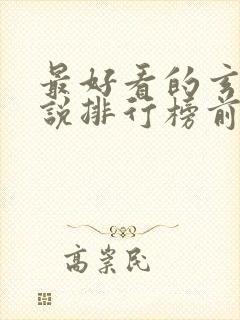 最好看的玄
說排行榜前
高崇民